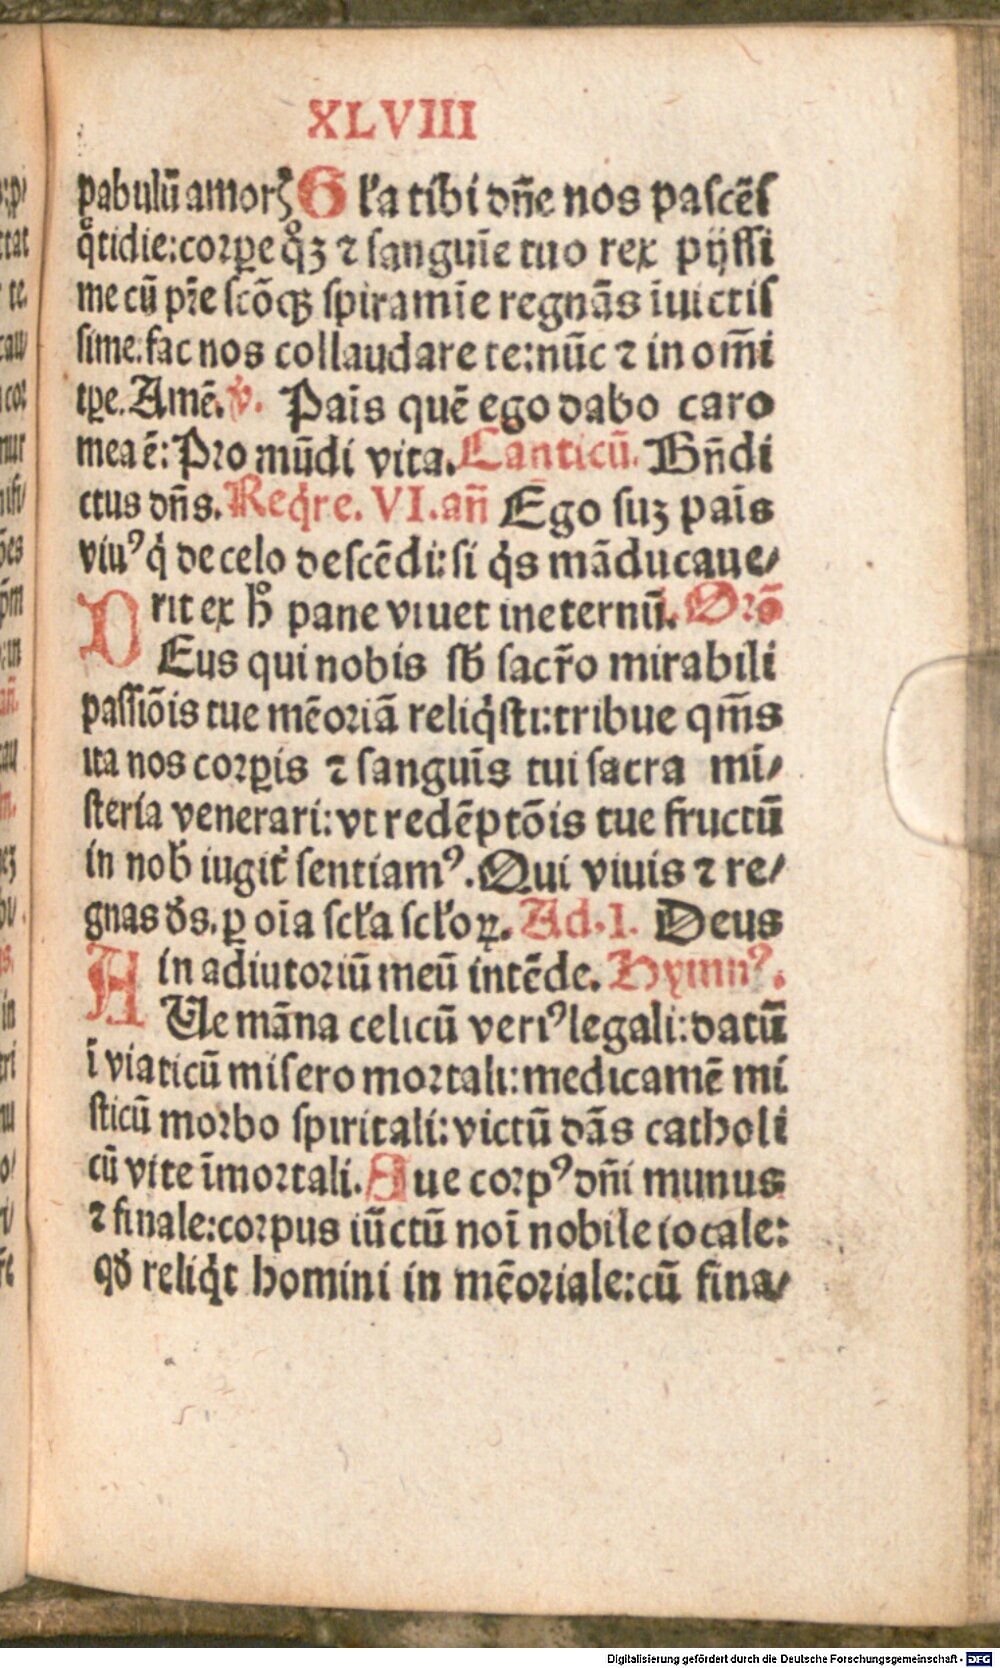 XLVIII
pabulū amorꝭ Gl'a tibi dn̄e nos pascēs
qͦtidie:corꝑe qͦꝫ ⁊ sanguīe tuo rex pijssi
me cū pr̄e scōqꝫ spiramīe regnās īuictis
sime.fac nos collaudare te:nūc ⁊ in om̄i
tꝑe.Amē.v̄. Panīs quē ego dabo caro
mea ē:Pro mūdi vita.Canticū.Bn̄di
ctus dn̄s.Reqͥre.VI.an̄ Ego suꝫ panīs
viuꝰ qͥ de celo descēdi:si qͥs māducaue/
rit ex hͦ pane viuet in eternū.Orō
DEus qui nobis sb̄ sacr̄o mirabili
passiōis tue mēoriā reliqͥsti:tribue qm̄s
ita nos corꝑis ⁊ sanguīs tui sacra mi/
steria venerari:vt redēptōis tue fructū
in nob̄ iugit̄ sentiamꝰ.Qui viuis ⁊ re/
gnas d̄s.ꝑ oīa scl'a scl'oꝝ.Ad.I. Deus
in adiutoriū meū intēde.Hymnꝰ.
AUe māna celicū veriꝰ legali:datū
ī viaticū misero mortali:medicamē mi
sticū morbo spiritali:victū dās catholi
cū vite īmortali.Aue corpꝰ dn̄i munus
⁊ finale:corpus iūctū noī nobile iocale:
qd̄ reliqͥt homini in mēoriale:cū fina/
Digitalisierung gefördert durch die Deutsche Forschungsgemeinschaft - DFG